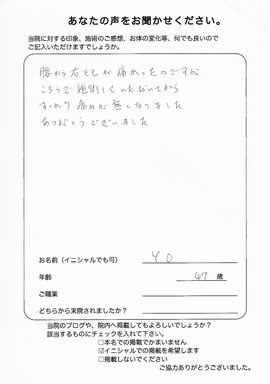 あなたの声をお聞かせください。
当院に対する印象、施術のご感想、お体の変化等、何でも良いので
ご記入いただけますでしょうか。
腰から右ももが痛かったのですが
こちらで施術していただいてから
すっかり痛みが無くなりました
ありがとうございました
お名前（イニシャルでも可） Y O
年齢 47 歳
ご職業
どちらから来院されましたか？
当院のブログや、院内へ掲載してもよろしいでしょうか？
該当するものにチェックを入れて下さい。
□本名での掲載でかまいません
☑イニシャルでの掲載を希望します
□掲載しないでください
ご協力ありがとうございました。